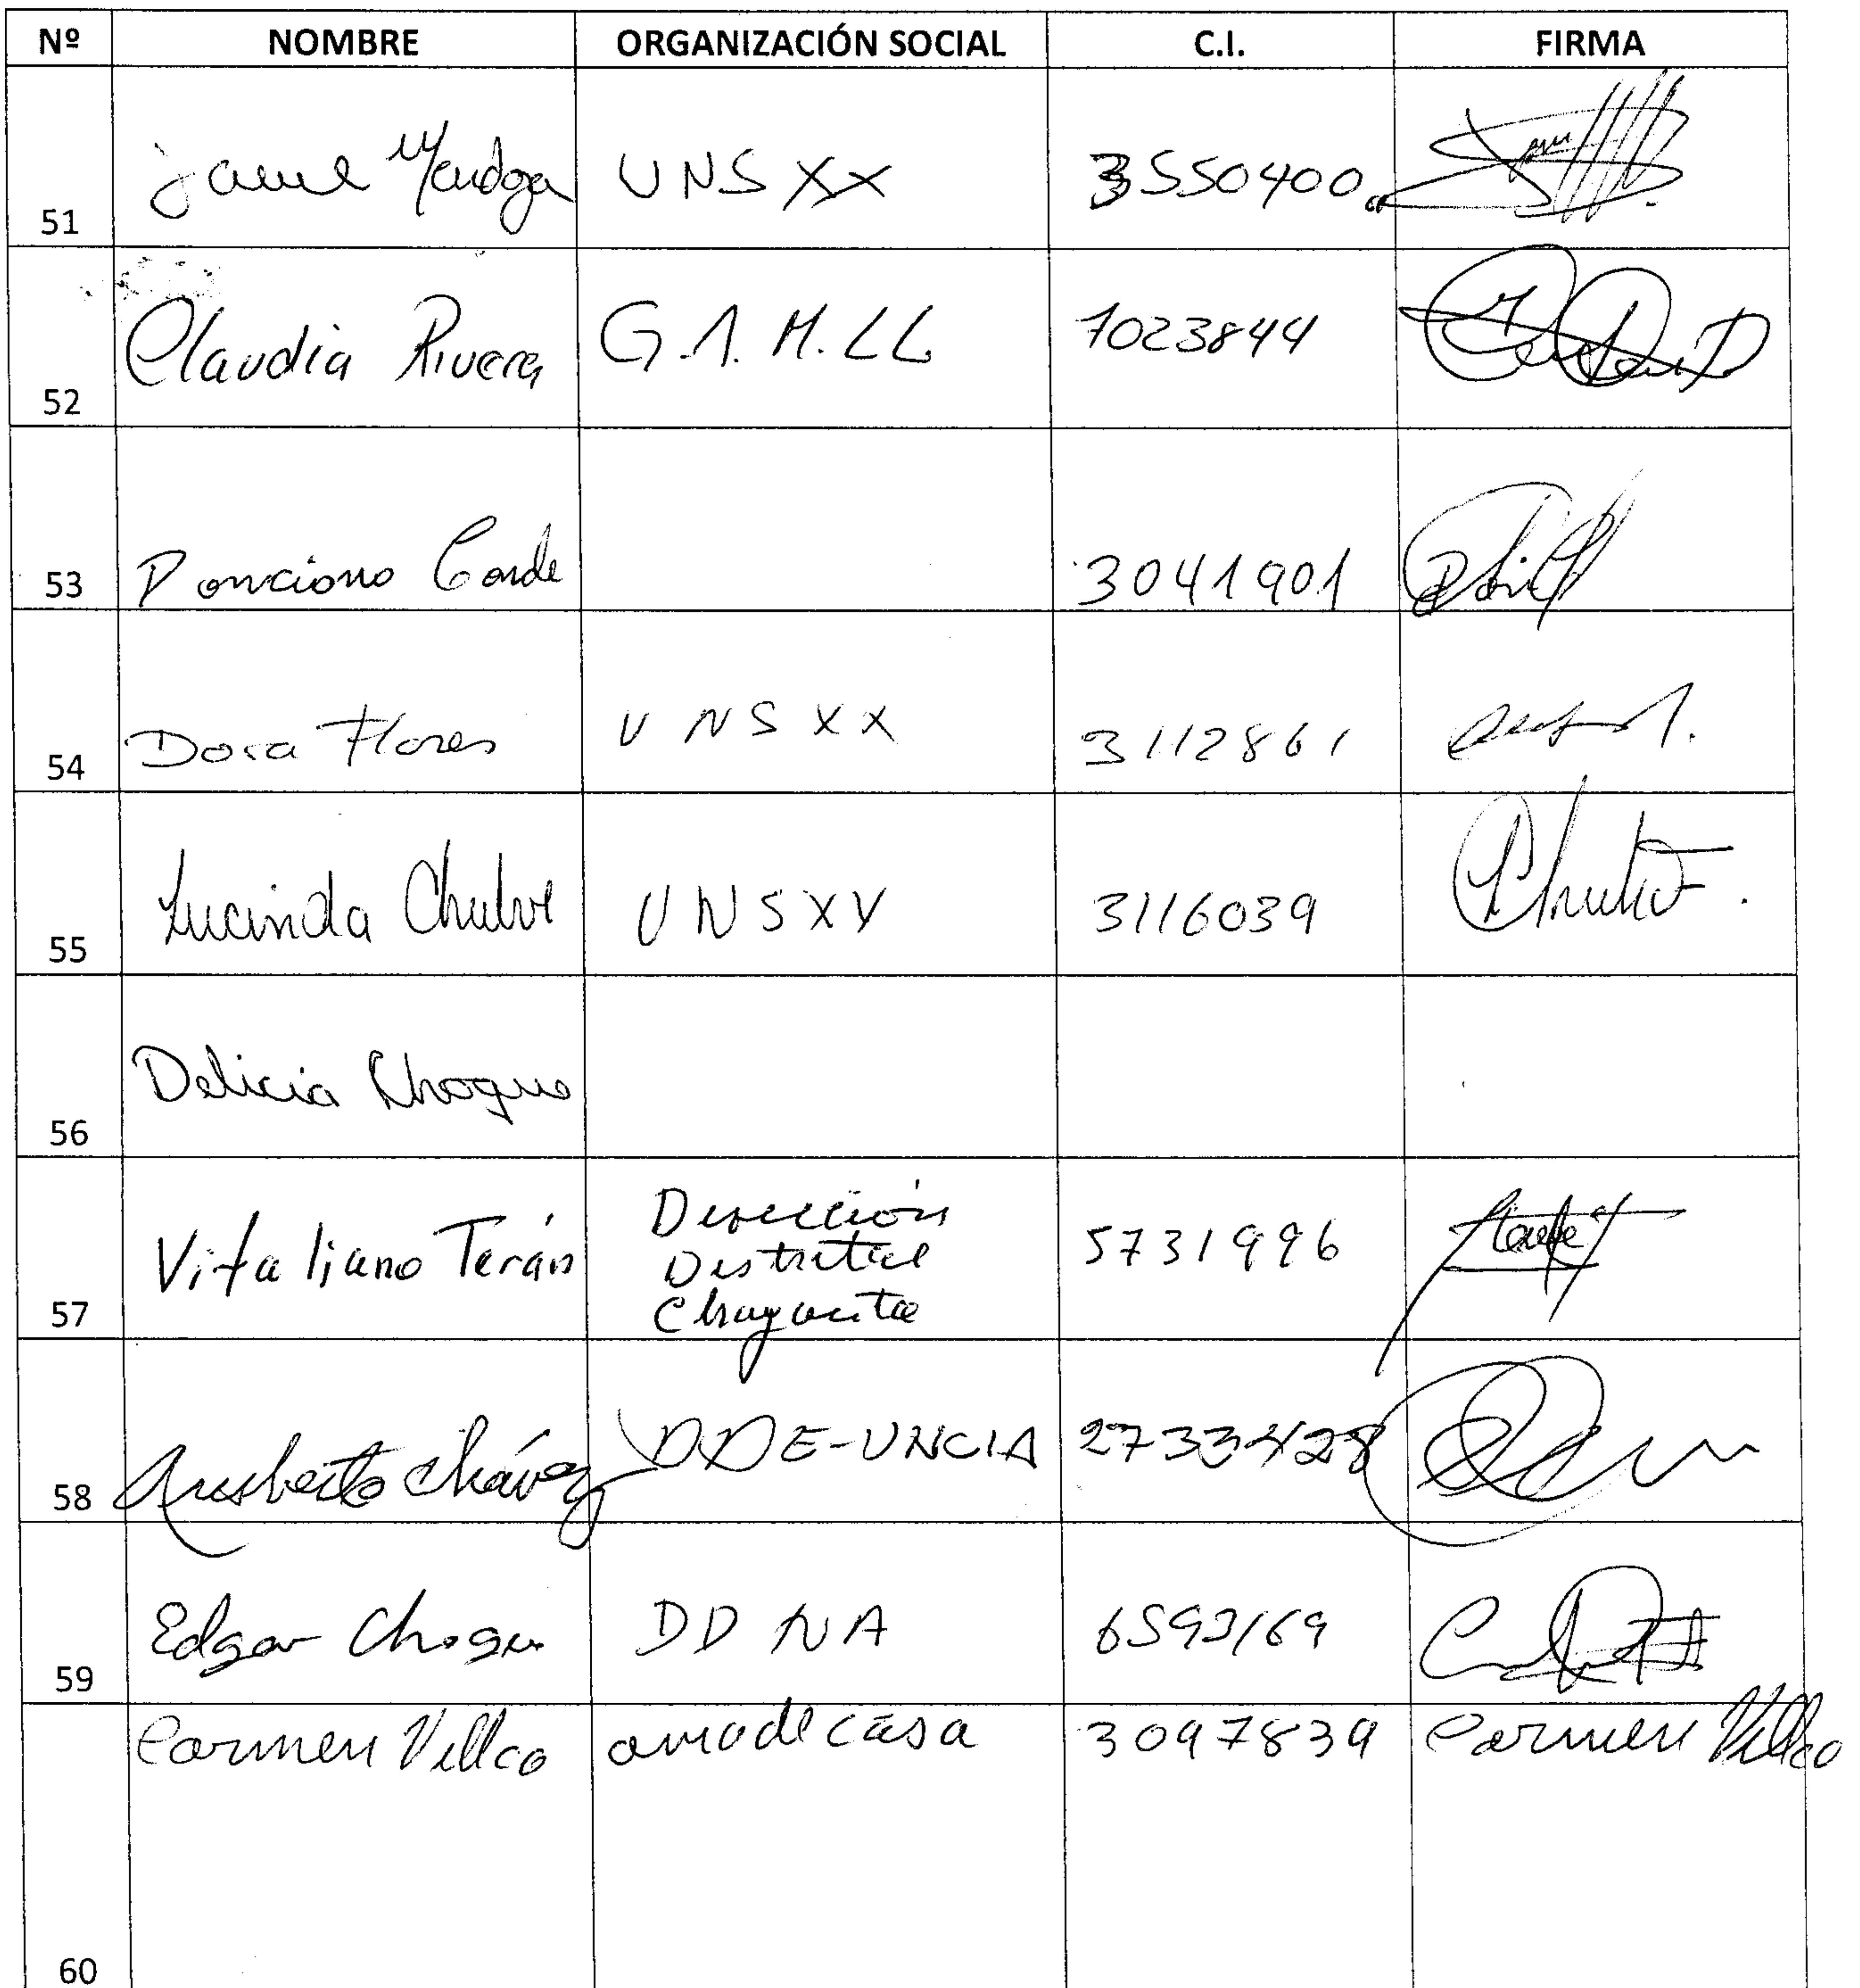 Nº NOMBRE ORGANIZACIÓN SOCIAL C.I. FIRMA
51 Jaime Mendoza UNSXX 3550400
52 Claudia Rivera G.A.M.LL 7023844
53 Ponciano Conde 3041901
54 Dora Flores UNSXX 3112861
55 Lucinda UNSXX 3116039
56 Delicia Choque
57 Vitaliano Terán Dirección
Distrital
Chayanta 5731996
58 Chávez DDE-UNCIA 2733428
59 Edgar Choque DDNA 6593169
60 Carmen Villca ama de casa 3097839 Carmen Villca